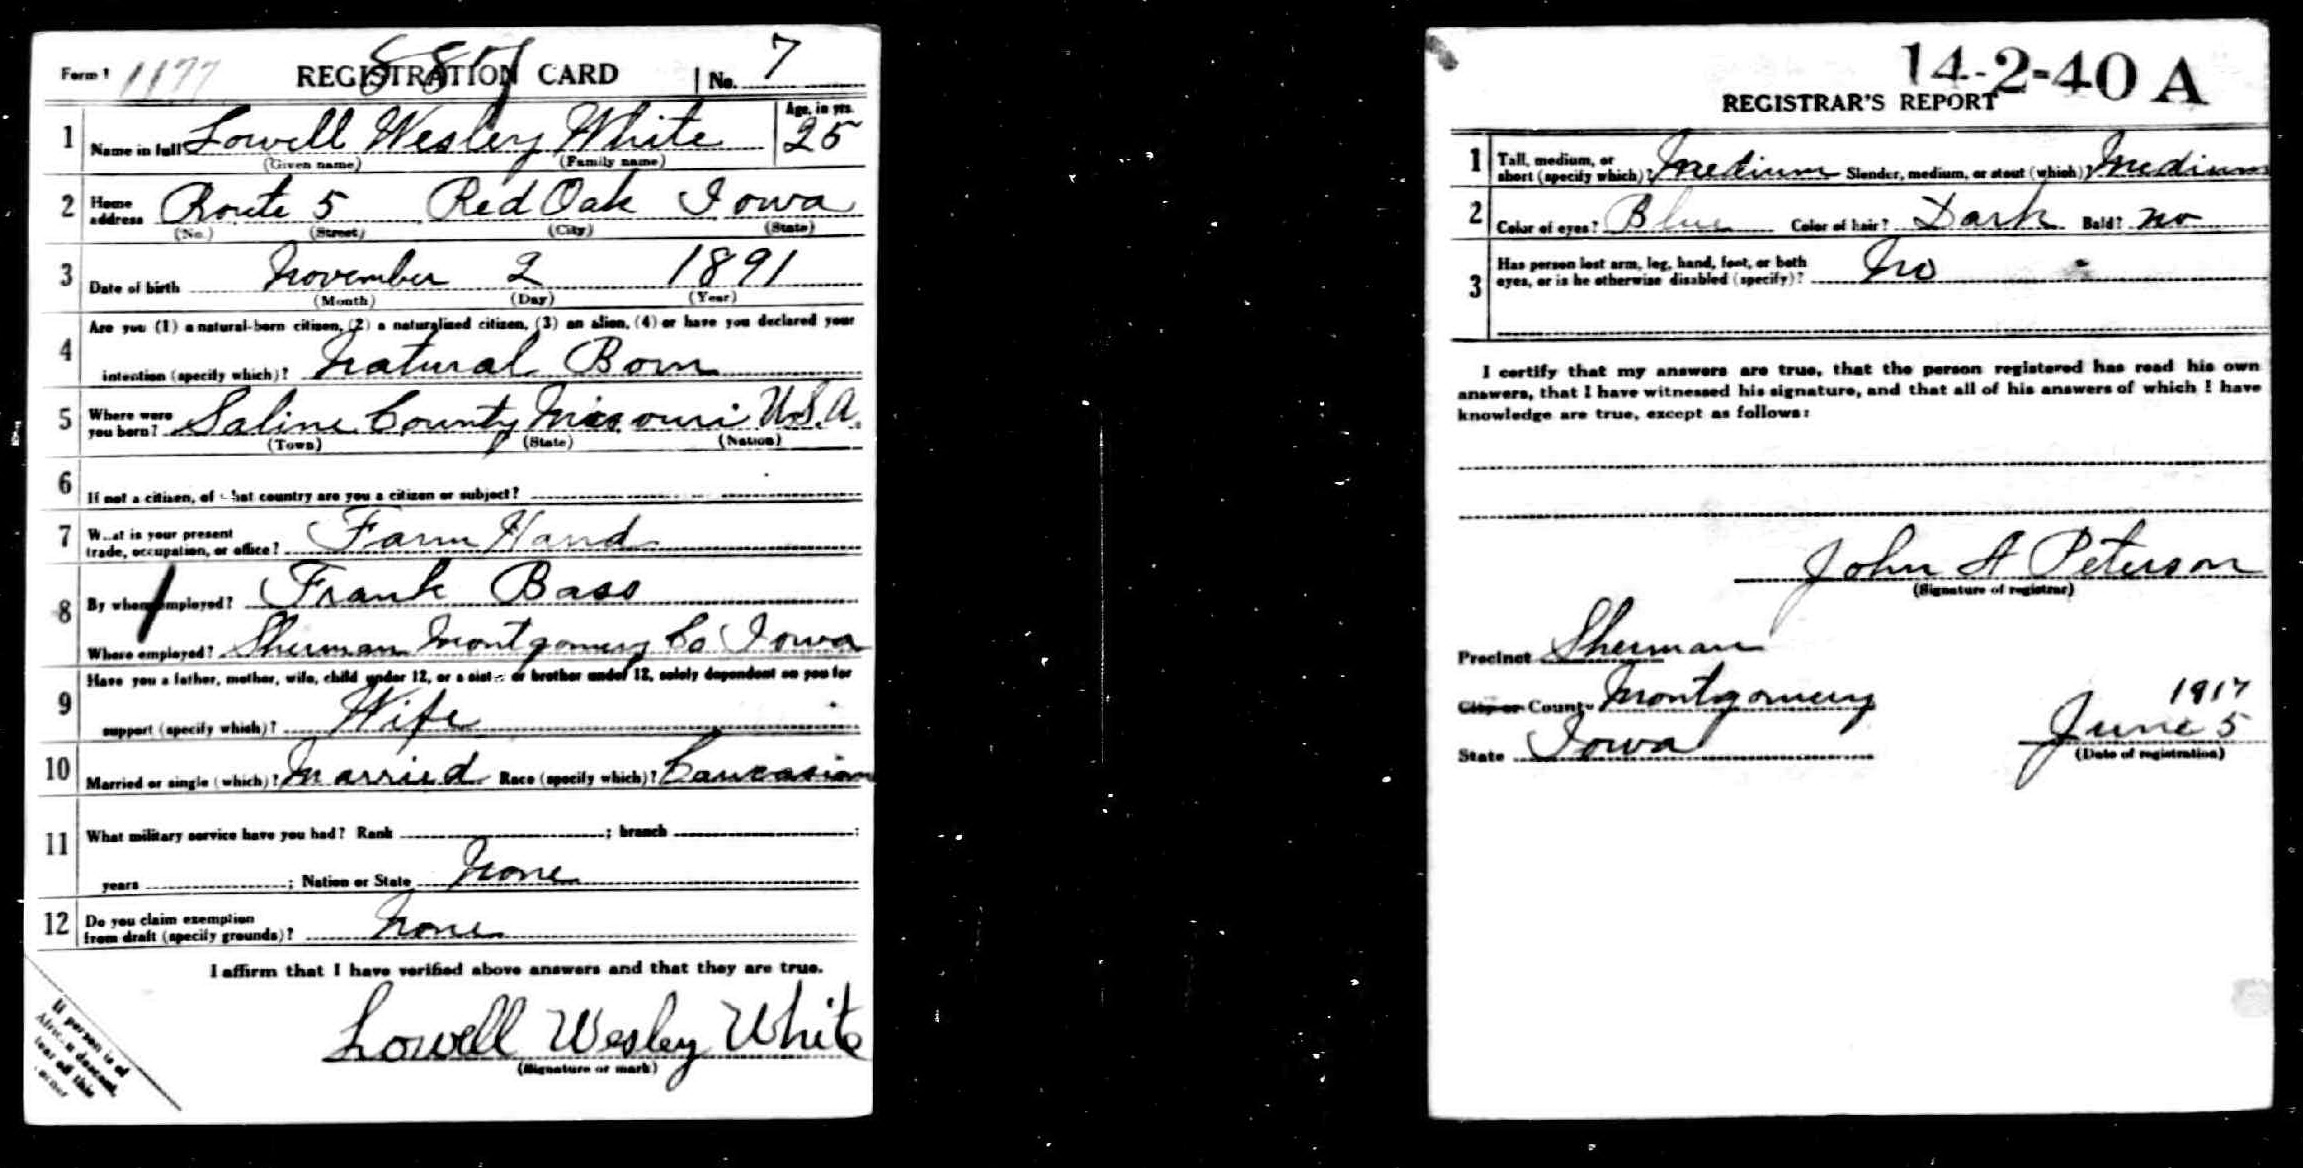 Form 1 1177 REGISTRATION CARD No. 7
1 Name in full Lowell Wesley White Age, in yrs. 25
(Given name) (Family name)
2 Home address Route 5 Red Oak Iowa
(No.) (Street) (City) (State)
3 Date of birth November 2 1891
(Month) (Day) (Year)
4 Are you (1) a natural-born citizen, (2) a naturalized citizen, (3) an alien, (4) or have you declared your
intention (specify which)? Natural Born
5 Where were you born? Saline County Missouri U.S.A.
(Town) (State) (Nation)
6 If not a citizen, of what country are you a citizen or subject?
7 What is your present
trade, occupation, or office? Farm Hand
8 By whom employed? Frank Bass
Where employed? Sherman Montgomery Co Iowa
9 Have you a father, mother, wife, child under 12, or a sister or brother under 12, solely dependent on you for
support (specify which)? Wife
10 Married or single (which)? Married Race (specify which)? Caucasian
11 What military service have you had? Rank ; branch ;
years ; Nation or State None
12 Do you claim exemption
from draft (specify grounds)? None
I affirm that I have verified above answers and that they are true.
Lowell Wesley White
(Signature or mark)
If person is of
African descent,
tear off this
corner
14-2-40 A
REGISTRAR'S REPORT
1 Tall, medium, or
short (specify which)? Medium Slender, medium, or stout (which)? Medium
2 Color of eyes? Blue Color of hair? Dark Bald? no
3 Has person lost arm, leg, hand, foot, or both
eyes, or is he otherwise disabled (specify)? No
I certify that my answers are true, that the person registered has read his own
answers, that I have witnessed his signature, and that all of his answers of which I have
knowledge are true, except as follows:
John A Peterson
(Signature of registrar)
Precinct Sherman
City or County Montgomery 1917
State Iowa June 5
(Date of registration)